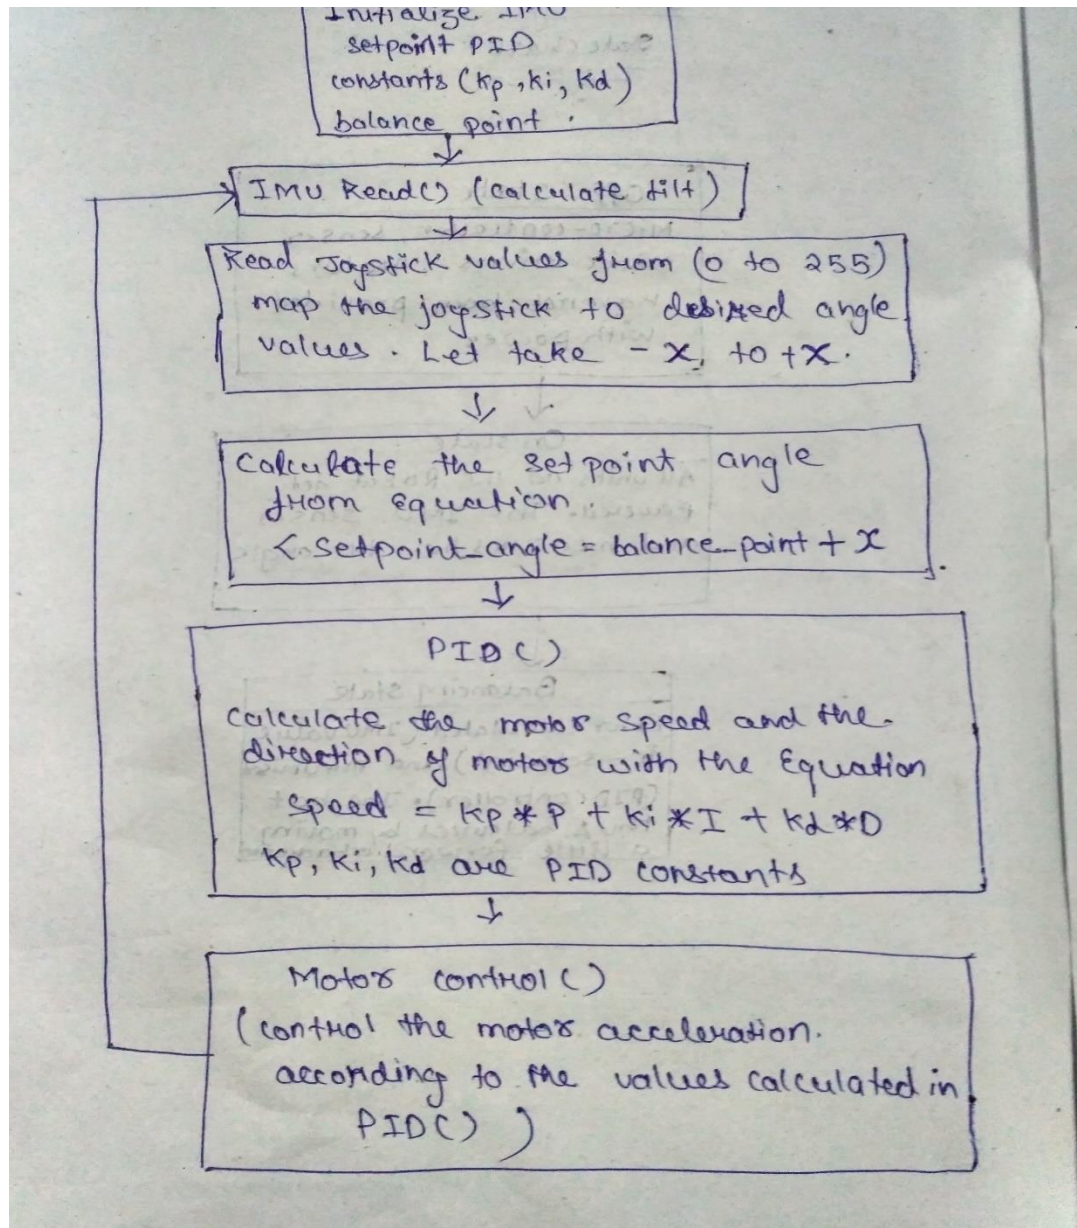 Initialize IMU
setpoint PID
constants (Kp, Ki, Kd)
balance point.
IMU Read() (calculate tilt)
Read Joystick values from (0 to 255)
map the joystick to desired angle
values. Let take -x, to +x.
Calculate the set point angle
from Equation.
< setpoint_angle = balance_point + x
PID()
calculate the motor speed and the
direction of motor with the Equation
speed = Kp * P + Ki * I + Kd * D
Kp, Ki, Kd are PID constants
Motor control()
(control the motor acceleration.
according to the values calculated in
PID() )